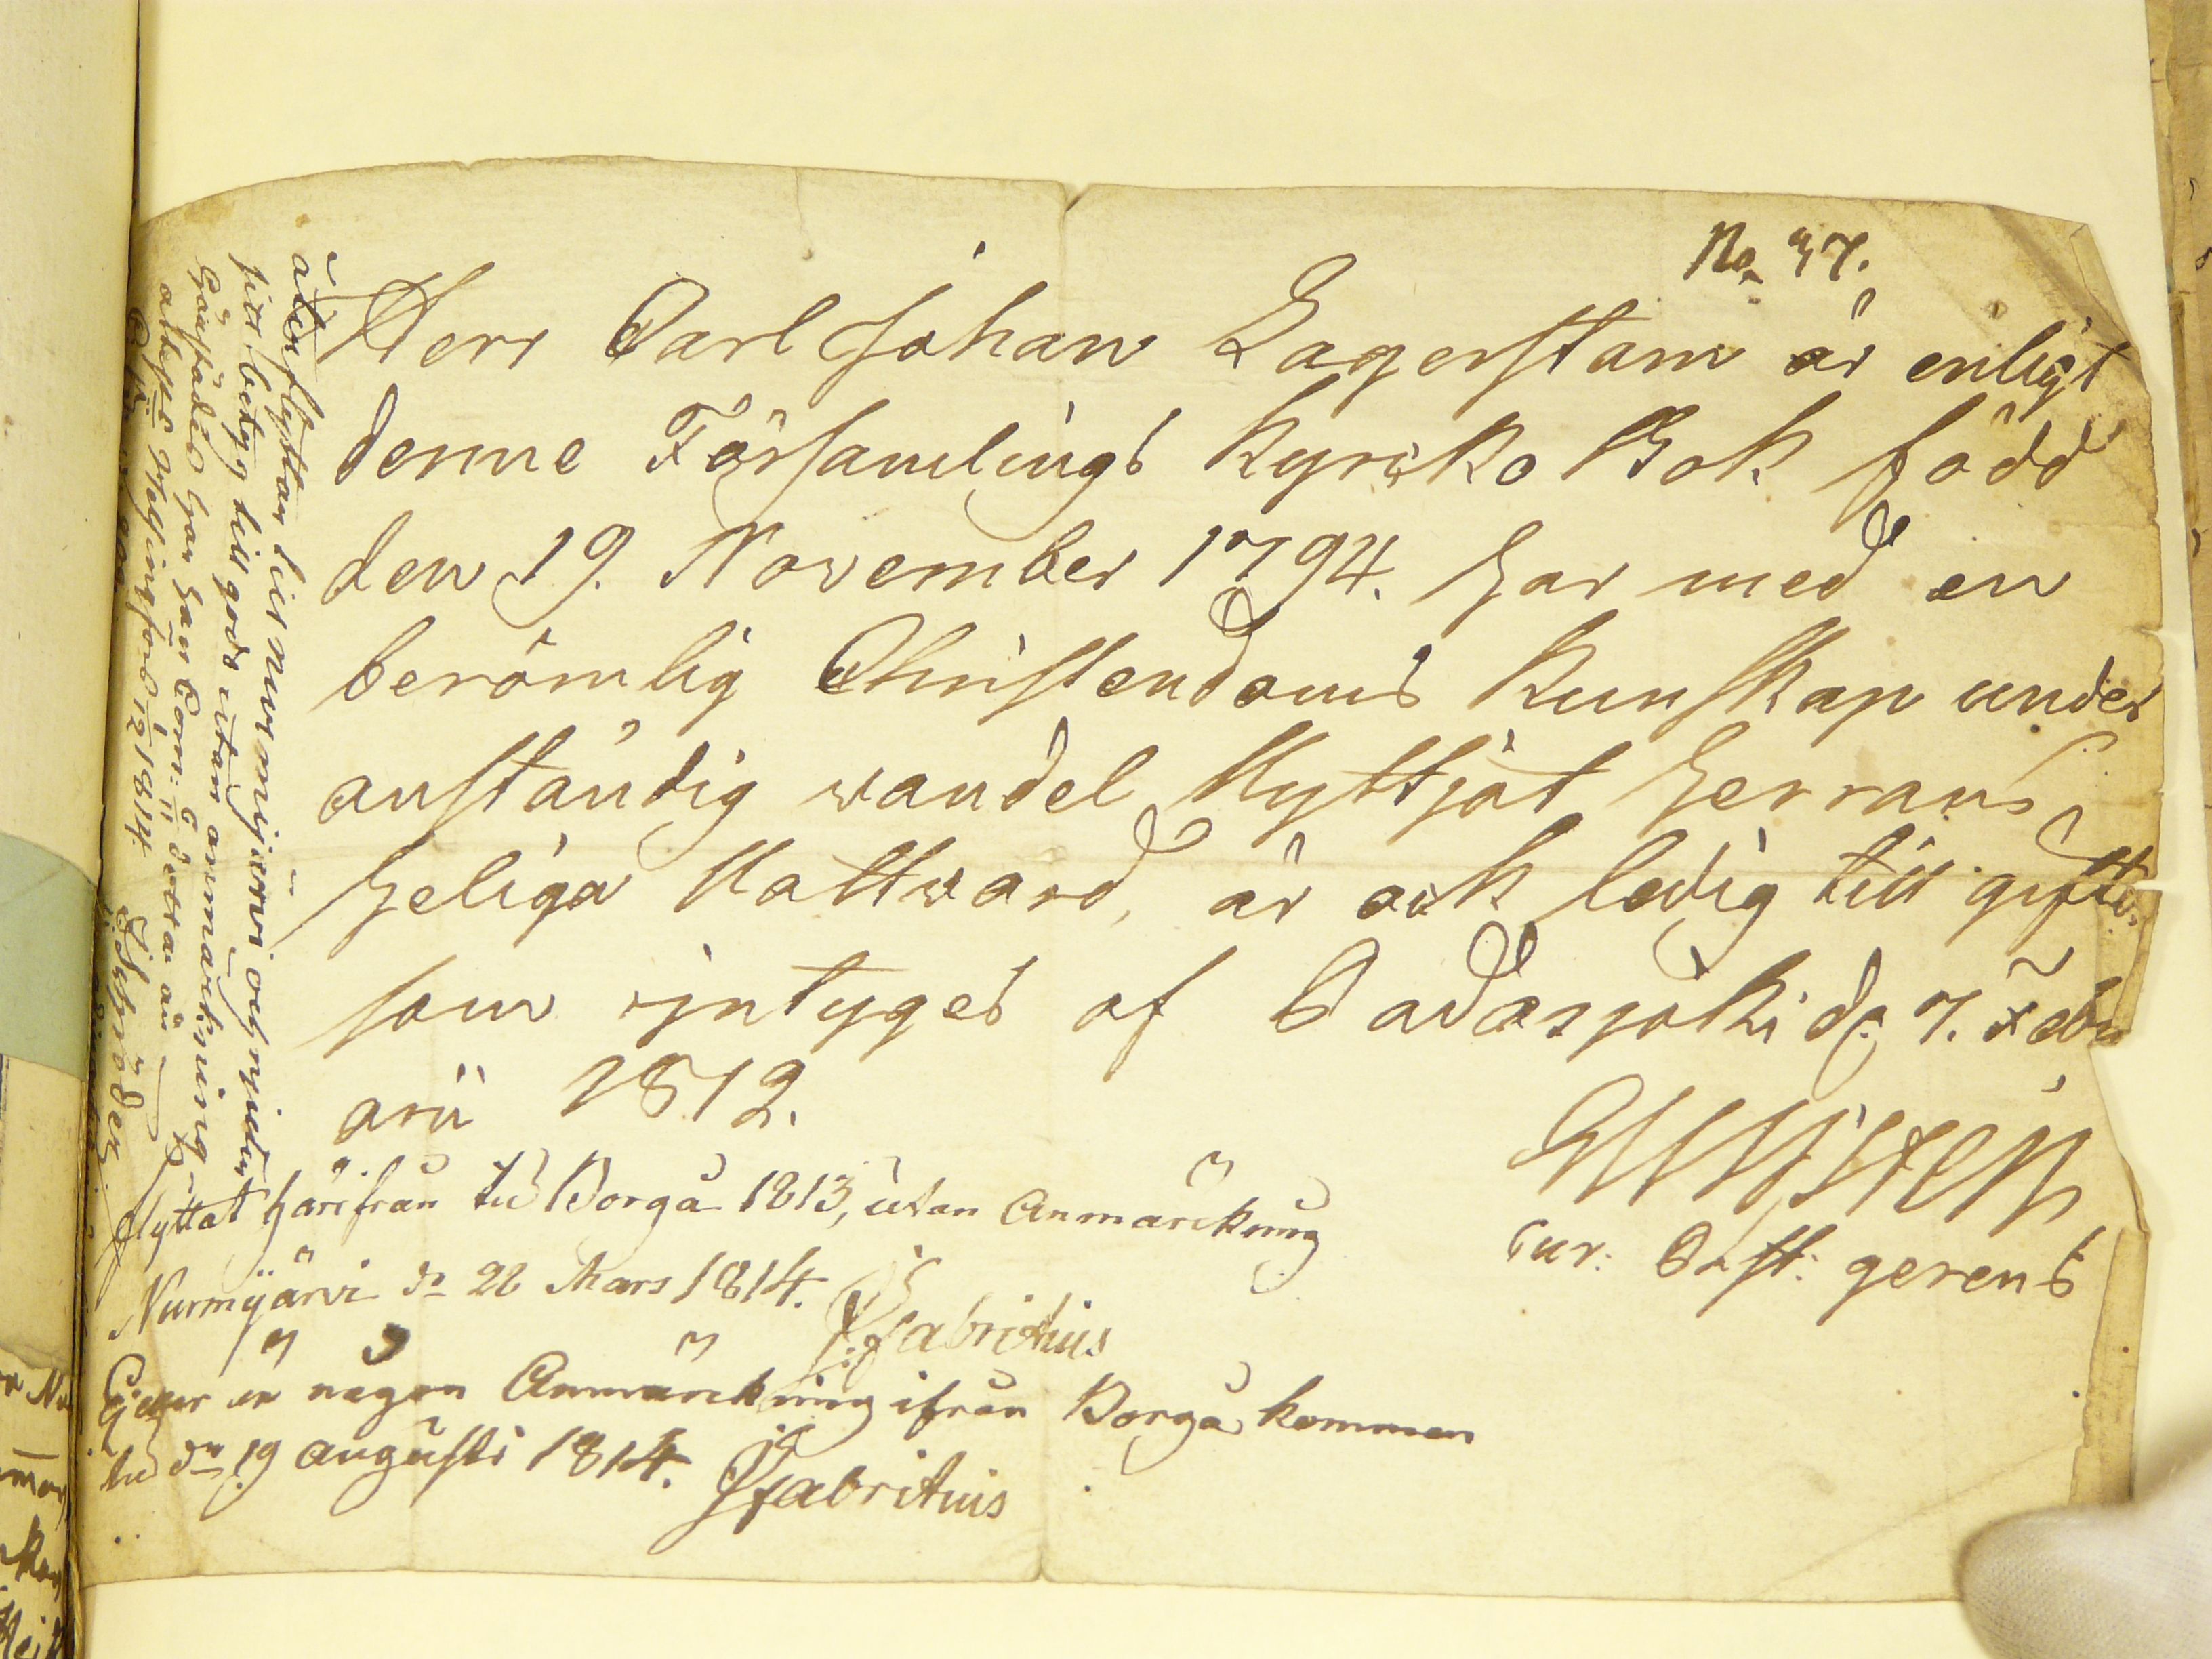 No 37.
Herr Carl Johan Lagerstam är enligt
denne Församlings Kyrcko Bok född
den 19. November 1794. har med en
berömlig Christendoms Kunskap under
anständig wandel Nyttjat Herrans
Heliga Nattward, är ock ledig till gifte.
som intyges af Padasjoki d. 7. Febru
arii 1812.
Cur: Past: gerens
flyttat härifrån till Borgå 1813, utan Anmärckning
Nurmijärvi dn 28 Mars 1814.
Fabritius
en någon Anmärckning ifrån Borgå kommen
till dn 19 Augusti 1814. Fabritius
åter flyttar till Nurmijärvi och
sitt betyg till godo utan anmärkning
har han Com: 6/11 detta år
Helsingfors 1/12 1814.